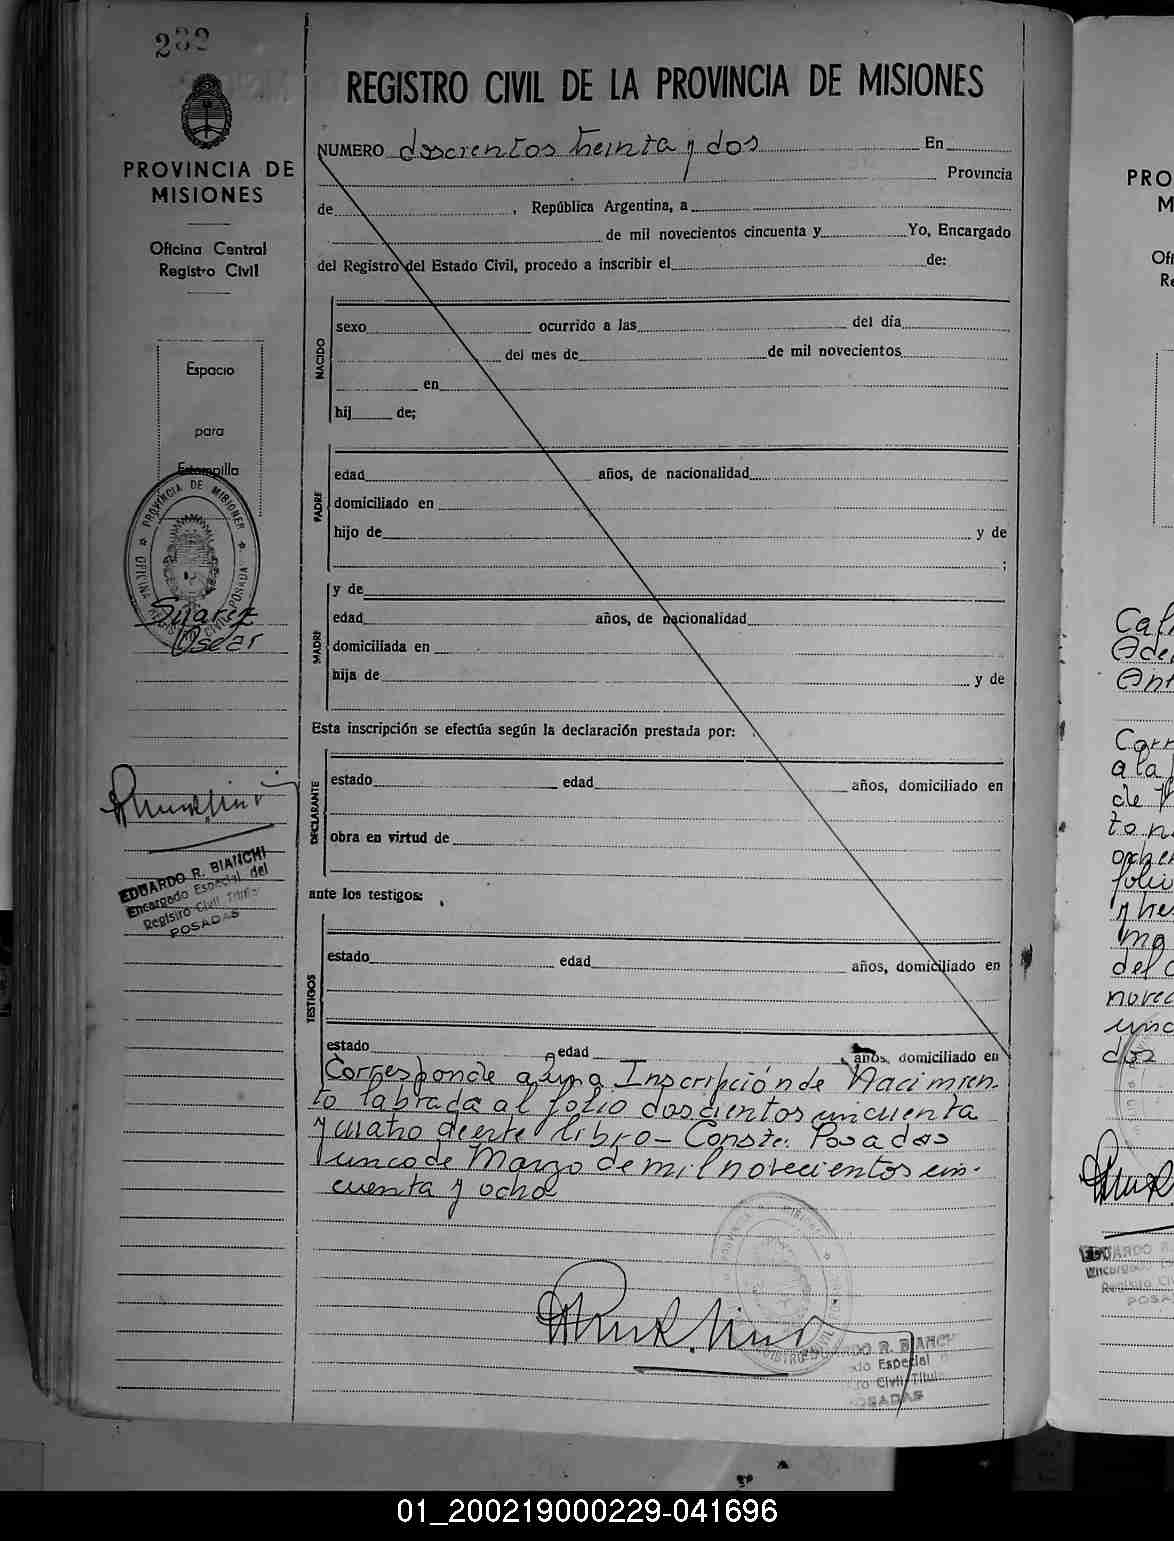 232
PROVINCIA DE
MISIONES
Oficina Central
Registro Civil
Espacio
para
Estampilla
PROVINCIA DE MISIONES
OFICINA REGISTRO CIVIL POSADA
Suarez
Oscar
EDUARDO R. BIANCHI
Encargado Especial del
Registro Civil Titular
POSADAS
REGISTRO CIVIL DE LA PROVINCIA DE MISIONES
NUMERO doscientos treinta y dos En
Provincia
de , República Argentina, a
de mil novecientos cincuenta y Yo, Encargado
del Registro del Estado Civil, procedo a inscribir el de:
NACIDO
sexo ocurrido a las del día
del mes de de mil novecientos
en
hij de;
PADRE
edad años, de nacionalidad
domiciliado en
hijo de y de
;
MADRE
y de
edad años, de nacionalidad
domiciliada en
hija de y de
Esta inscripción se efectúa según la declaración prestada por:
DECLARANTE
estado edad años, domiciliado en
obra en virtud de
ante los testigos:
TESTIGOS
estado edad años, domiciliado en
estado edad años, domiciliado en
Corresponde a una Inscripción de Nacimien-
to labrada al folio doscientos cincuenta
y cuatro de este libro - Conste. Posadas
cinco de Marzo de mil novecientos cin-
cuenta y ocho
DO R. BIANCH
do Especial
ro Civil Titul
POSADAS
PRO
M
Ofi
Re
Ade
Ant
Corr
a la
de
to n
oche
folio
y tres
Ma
del
novec
cinc
dos
EDUARDO R.
Encargado Es
Registro Ci
POSA
01_200219000229-041696